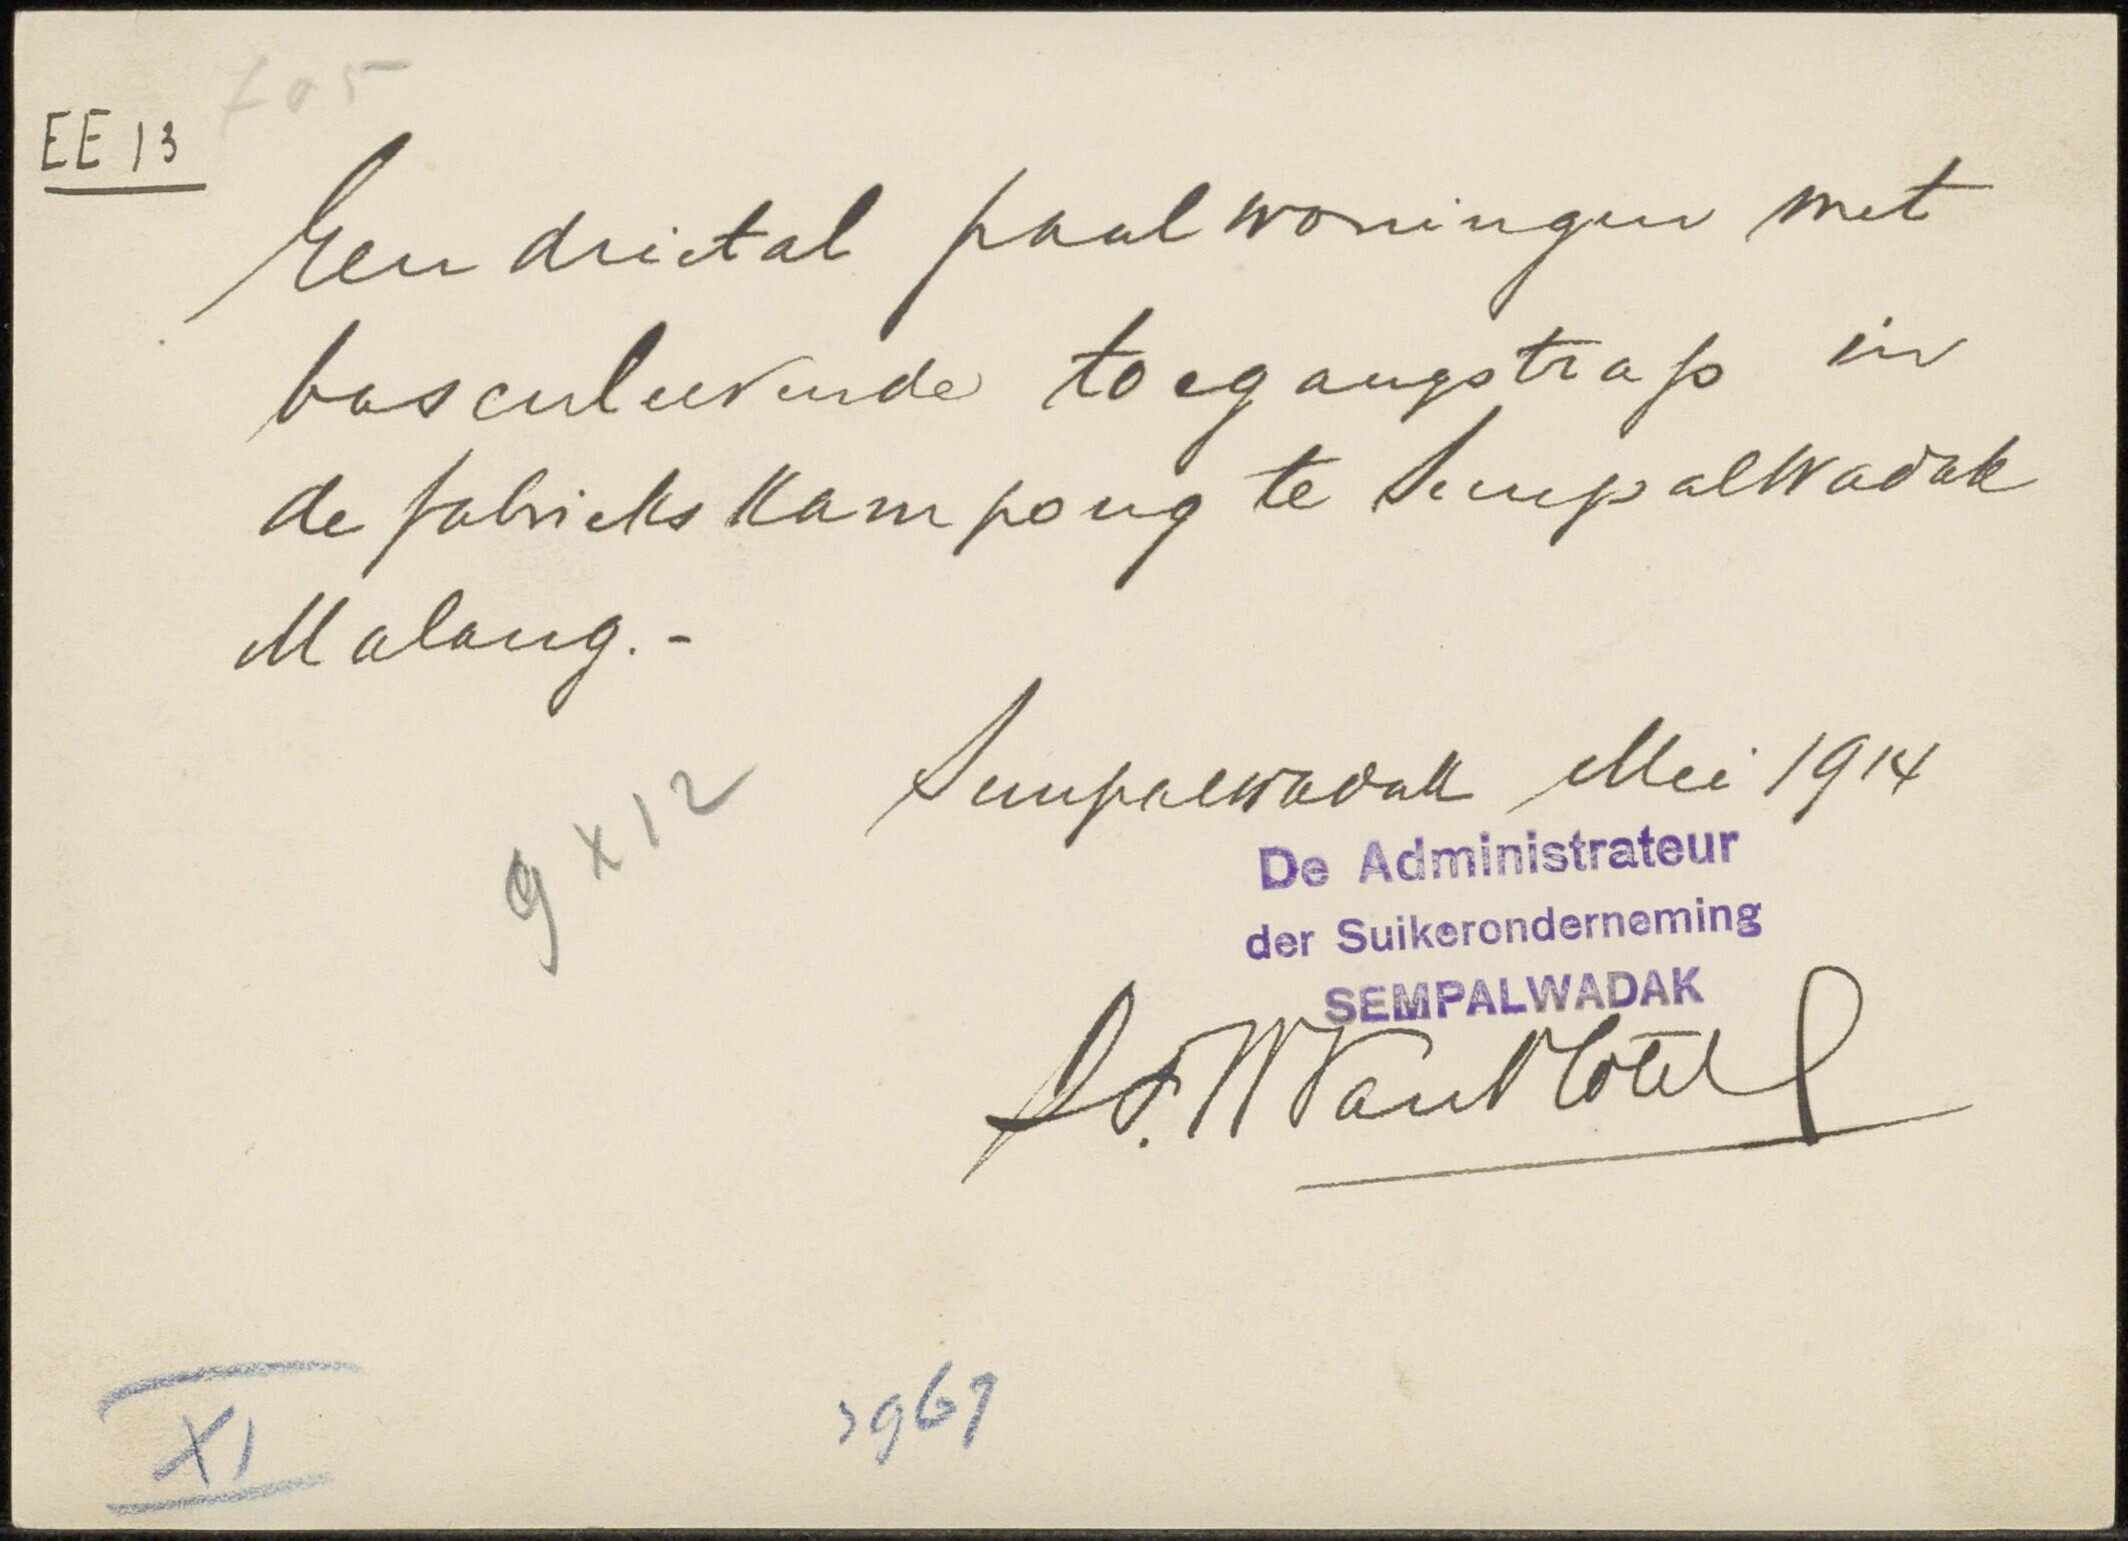 705
EE 13
Een drietal paalwoningen met
basculeerende toegangstrap in
de fabriekskampong te Sempalwadak
Malang.-
Sempalwadak Mei 1914
9 x 12
De Administrateur
der Suikeronderneming
SEMPALWADAK
XI